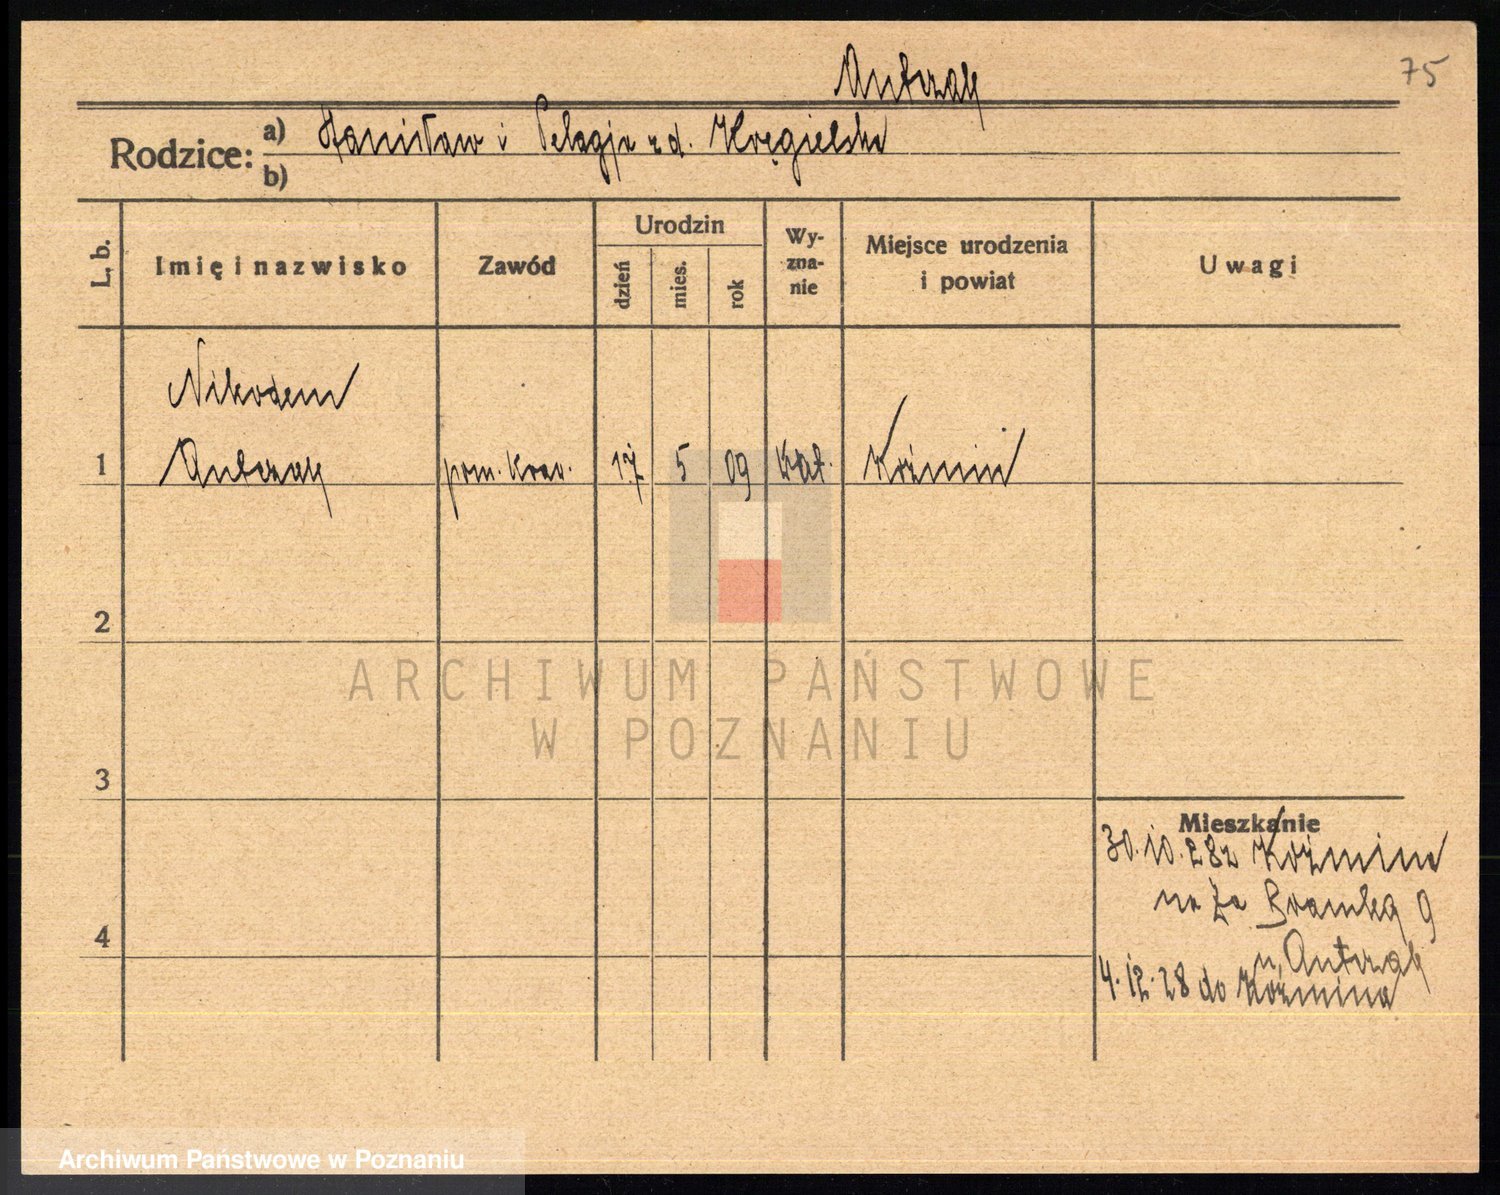 75
Antczak
Rodzice: a) Stanisław i Pelagja z d. Kręgielska
b)
L. b.
Imię i nazwisko
Zawód
Urodzin
dzień
mies.
rok
Wy-
zna-
nie
Miejsce urodzenia
i powiat
Uwagi
Nikodem
1 Antczak pom. kraw. 17 5 09 kat. Koźmin
2
3
4
Mieszkanie
30.10.28 z Koźmina
na Za Bramką 9
u Antczak
4.12.28 do Koźmina
ARCHIWUM PAŃSTWOWE
W POZNANIU
Archiwum Państwowe w Poznaniu